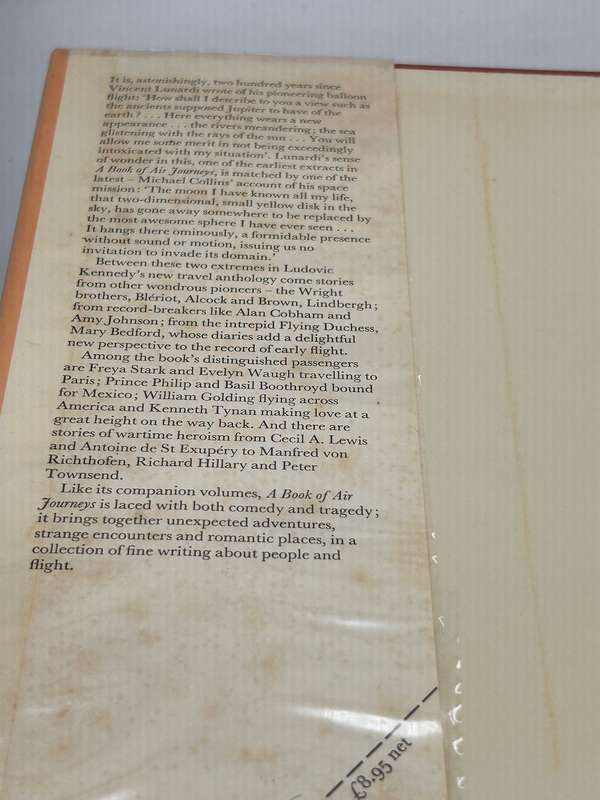 It is, astonishingly, two hundred years since
Vincent Lunardi wrote of his pioneering balloon
flight: 'How shall I describe to you a view such as
the ancients supposed Jupiter to have of the
earth? . . . Here everything wears a new
appearance . . . the rivers meandering; the sea
glistening with the rays of the sun . . . You will
allow me some merit in not being exceedingly
intoxicated with my situation'. Lunardi's sense
of wonder in this, one of the earliest extracts in
A Book of Air Journeys, is matched by one of the
latest – Michael Collins' account of his space
mission: 'The moon I have known all my life,
that two-dimensional, small yellow disk in the
sky, has gone away somewhere to be replaced by
the most awesome sphere I have ever seen . . .
It hangs there ominously, a formidable presence
without sound or motion, issuing us no
invitation to invade its domain.'
Between these two extremes in Ludovic
Kennedy's new travel anthology come stories
from other wondrous pioneers – the Wright
brothers, Blériot, Alcock and Brown, Lindbergh;
from record-breakers like Alan Cobham and
Amy Johnson; from the intrepid Flying Duchess,
Mary Bedford, whose diaries add a delightful
new perspective to the record of early flight.
Among the book's distinguished passengers
are Freya Stark and Evelyn Waugh travelling to
Paris; Prince Philip and Basil Boothroyd bound
for Mexico; William Golding flying across
America and Kenneth Tynan making love at a
great height on the way back. And there are
stories of wartime heroism from Cecil A. Lewis
and Antoine de St Exupéry to Manfred von
Richthofen, Richard Hillary and Peter
Townsend.
Like its companion volumes, A Book of Air
Journeys is laced with both comedy and tragedy;
it brings together unexpected adventures,
strange encounters and romantic places, in a
collection of fine writing about people and
flight.
£8.95 net